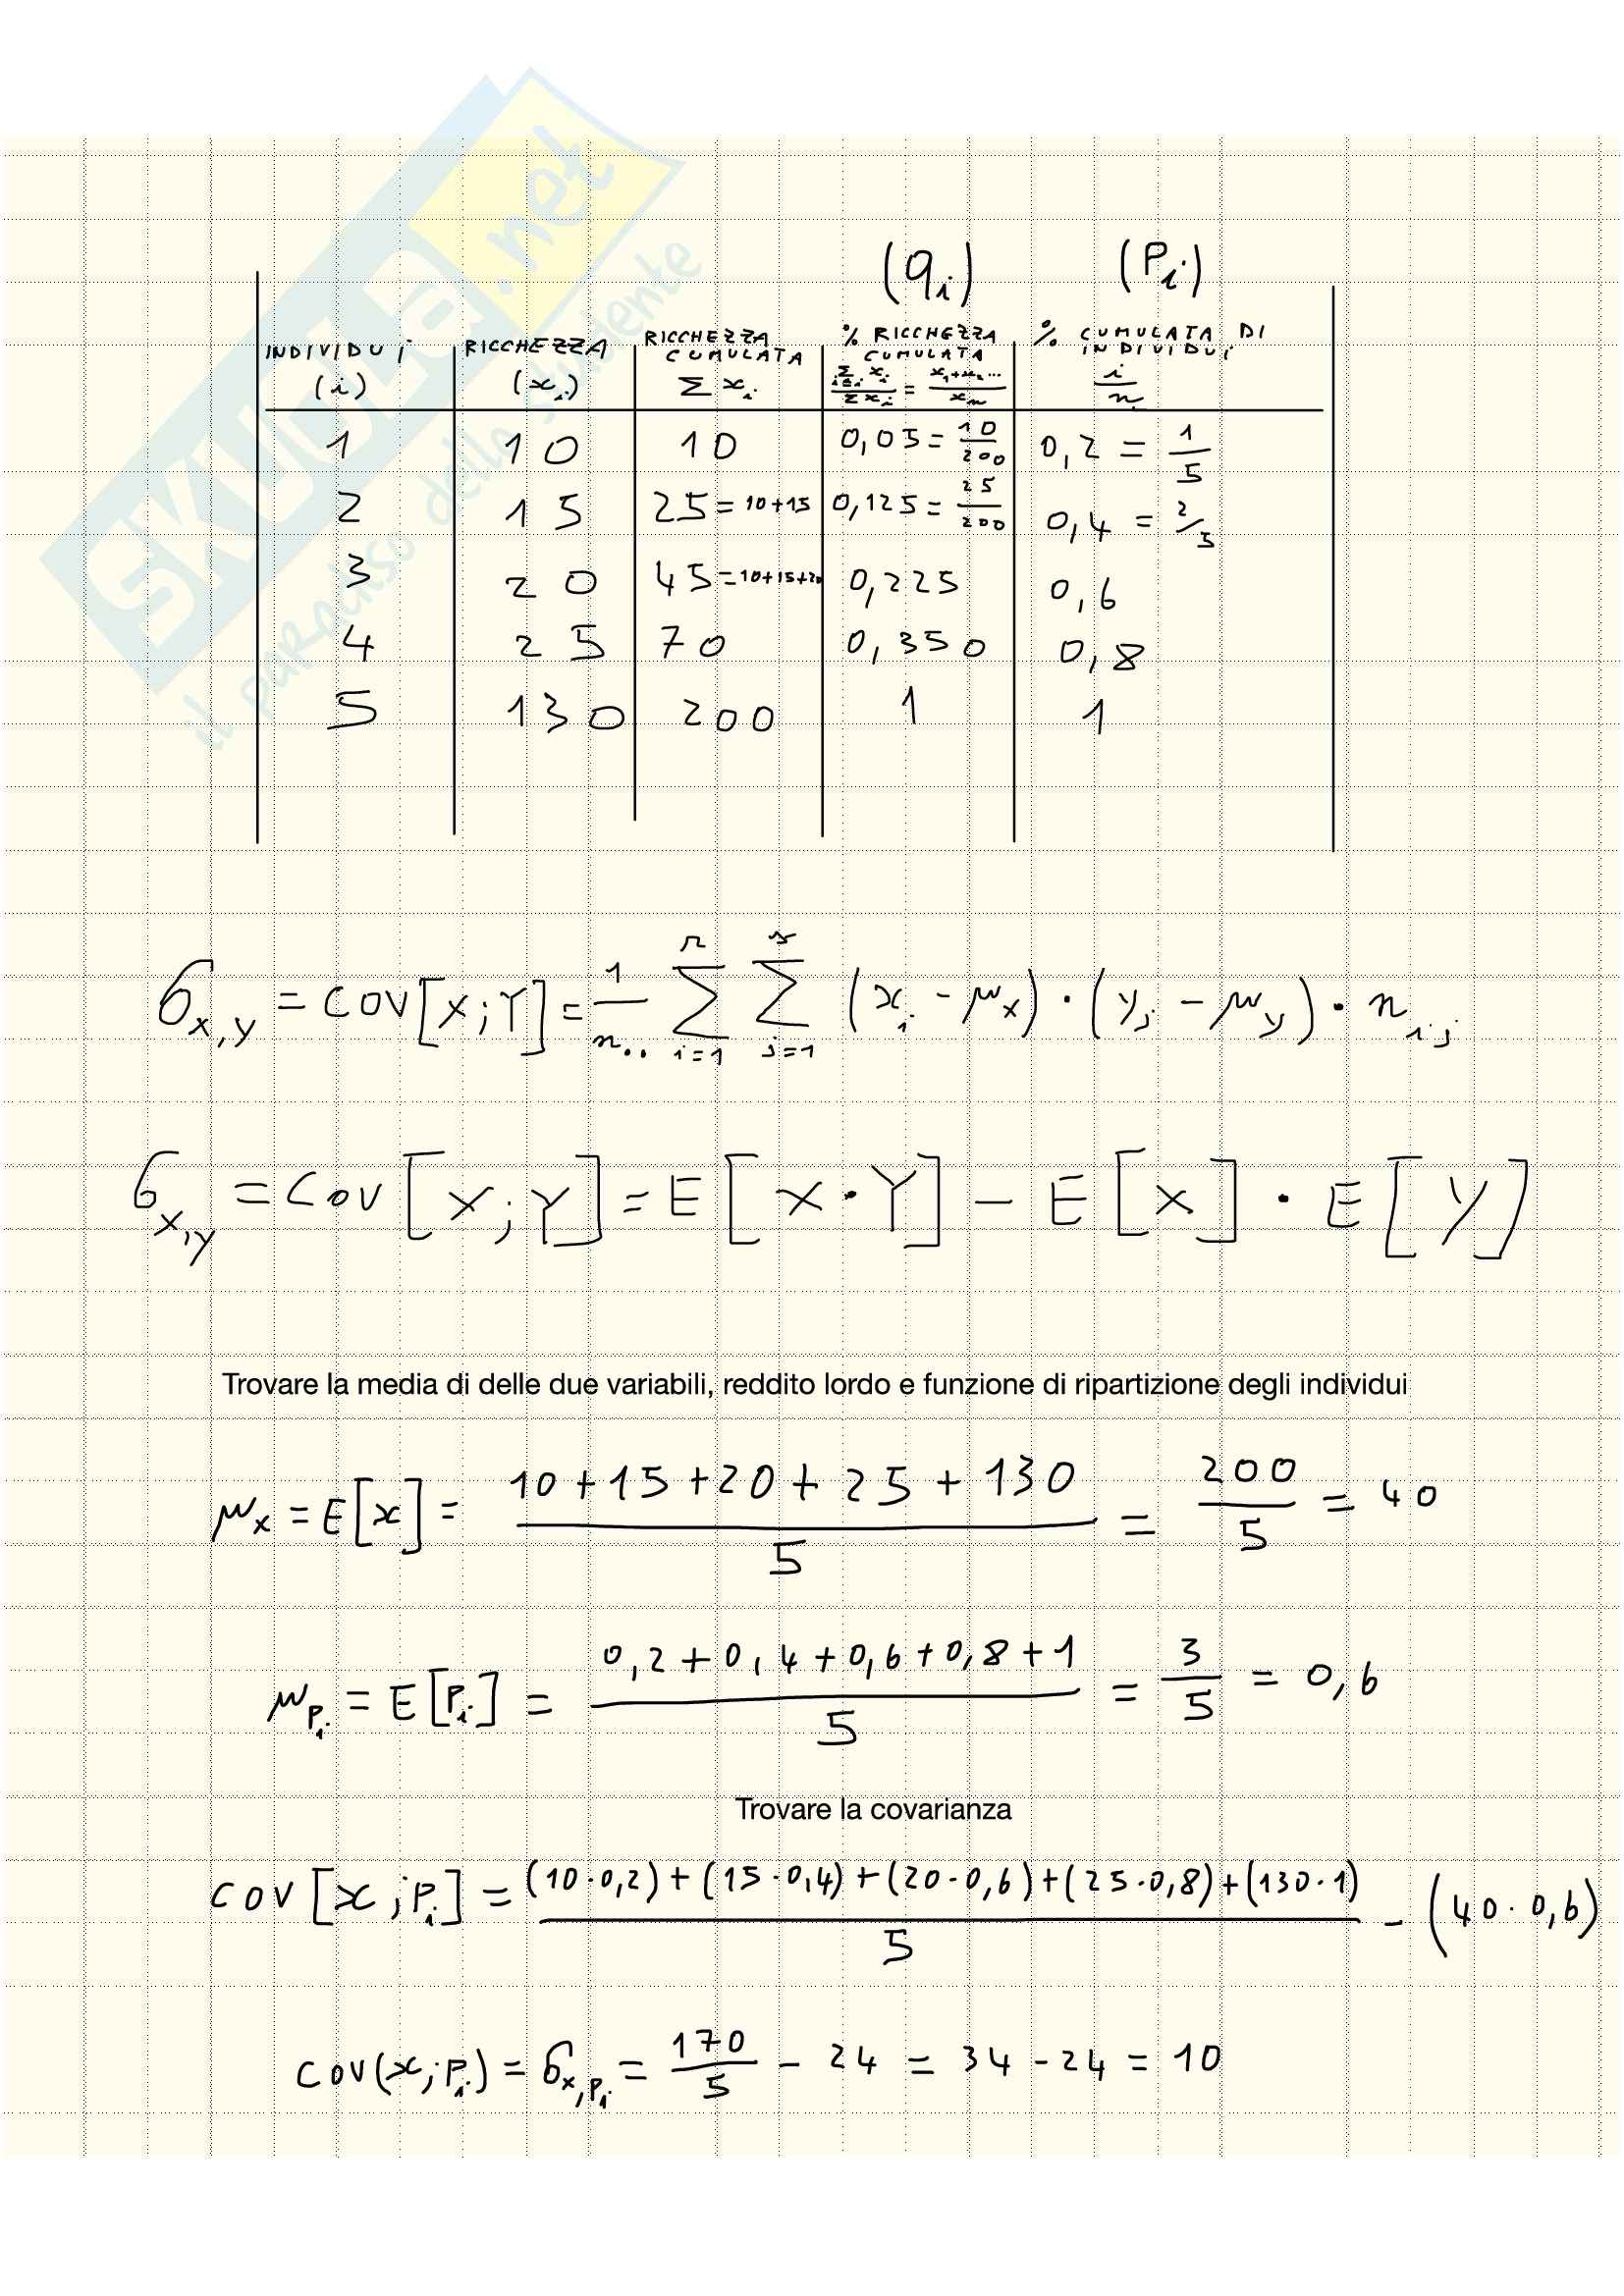 SKUOLA.net
il paradiso dello studente
(qi) (Pi)
INDIVIDUI RICCHEZZA RICCHEZZA CUMULATA % RICCHEZZA CUMULATA % CUMULATA DI INDIVIDUI
(i) (xi) Σ xi i/n
1 10 10 0,05 = 10/200 0,2 = 1/5
2 15 25 = 10+15 0,125 = 25/200 0,4 = 2/5
3 20 45 = 10+15+20 0,225 0,6
4 25 70 0,350 0,8
5 130 200 1 1
σx,y = COV[X;Y] = 1/n.. Σ i=1 r Σ j=1 s (xi - μx) · (yj - μy) · nij
σx,y = COV[X;Y] = E[X·Y] - E[X] · E[Y]
Trovare la media di delle due variabili, reddito lordo e funzione di ripartizione degli individui
μx = E[x] = (10+15+20+25+130)/5 = 200/5 = 40
μPi = E[Pi] = (0,2+0,4+0,6+0,8+1)/5 = 3/5 = 0,6
Trovare la covarianza
COV[x;Pi] = ((10·0,2)+(15·0,4)+(20·0,6)+(25·0,8)+(130·1))/5 - (40·0,6)
COV(x;Pi) = σx,Pi = 170/5 - 24 = 34 - 24 = 10